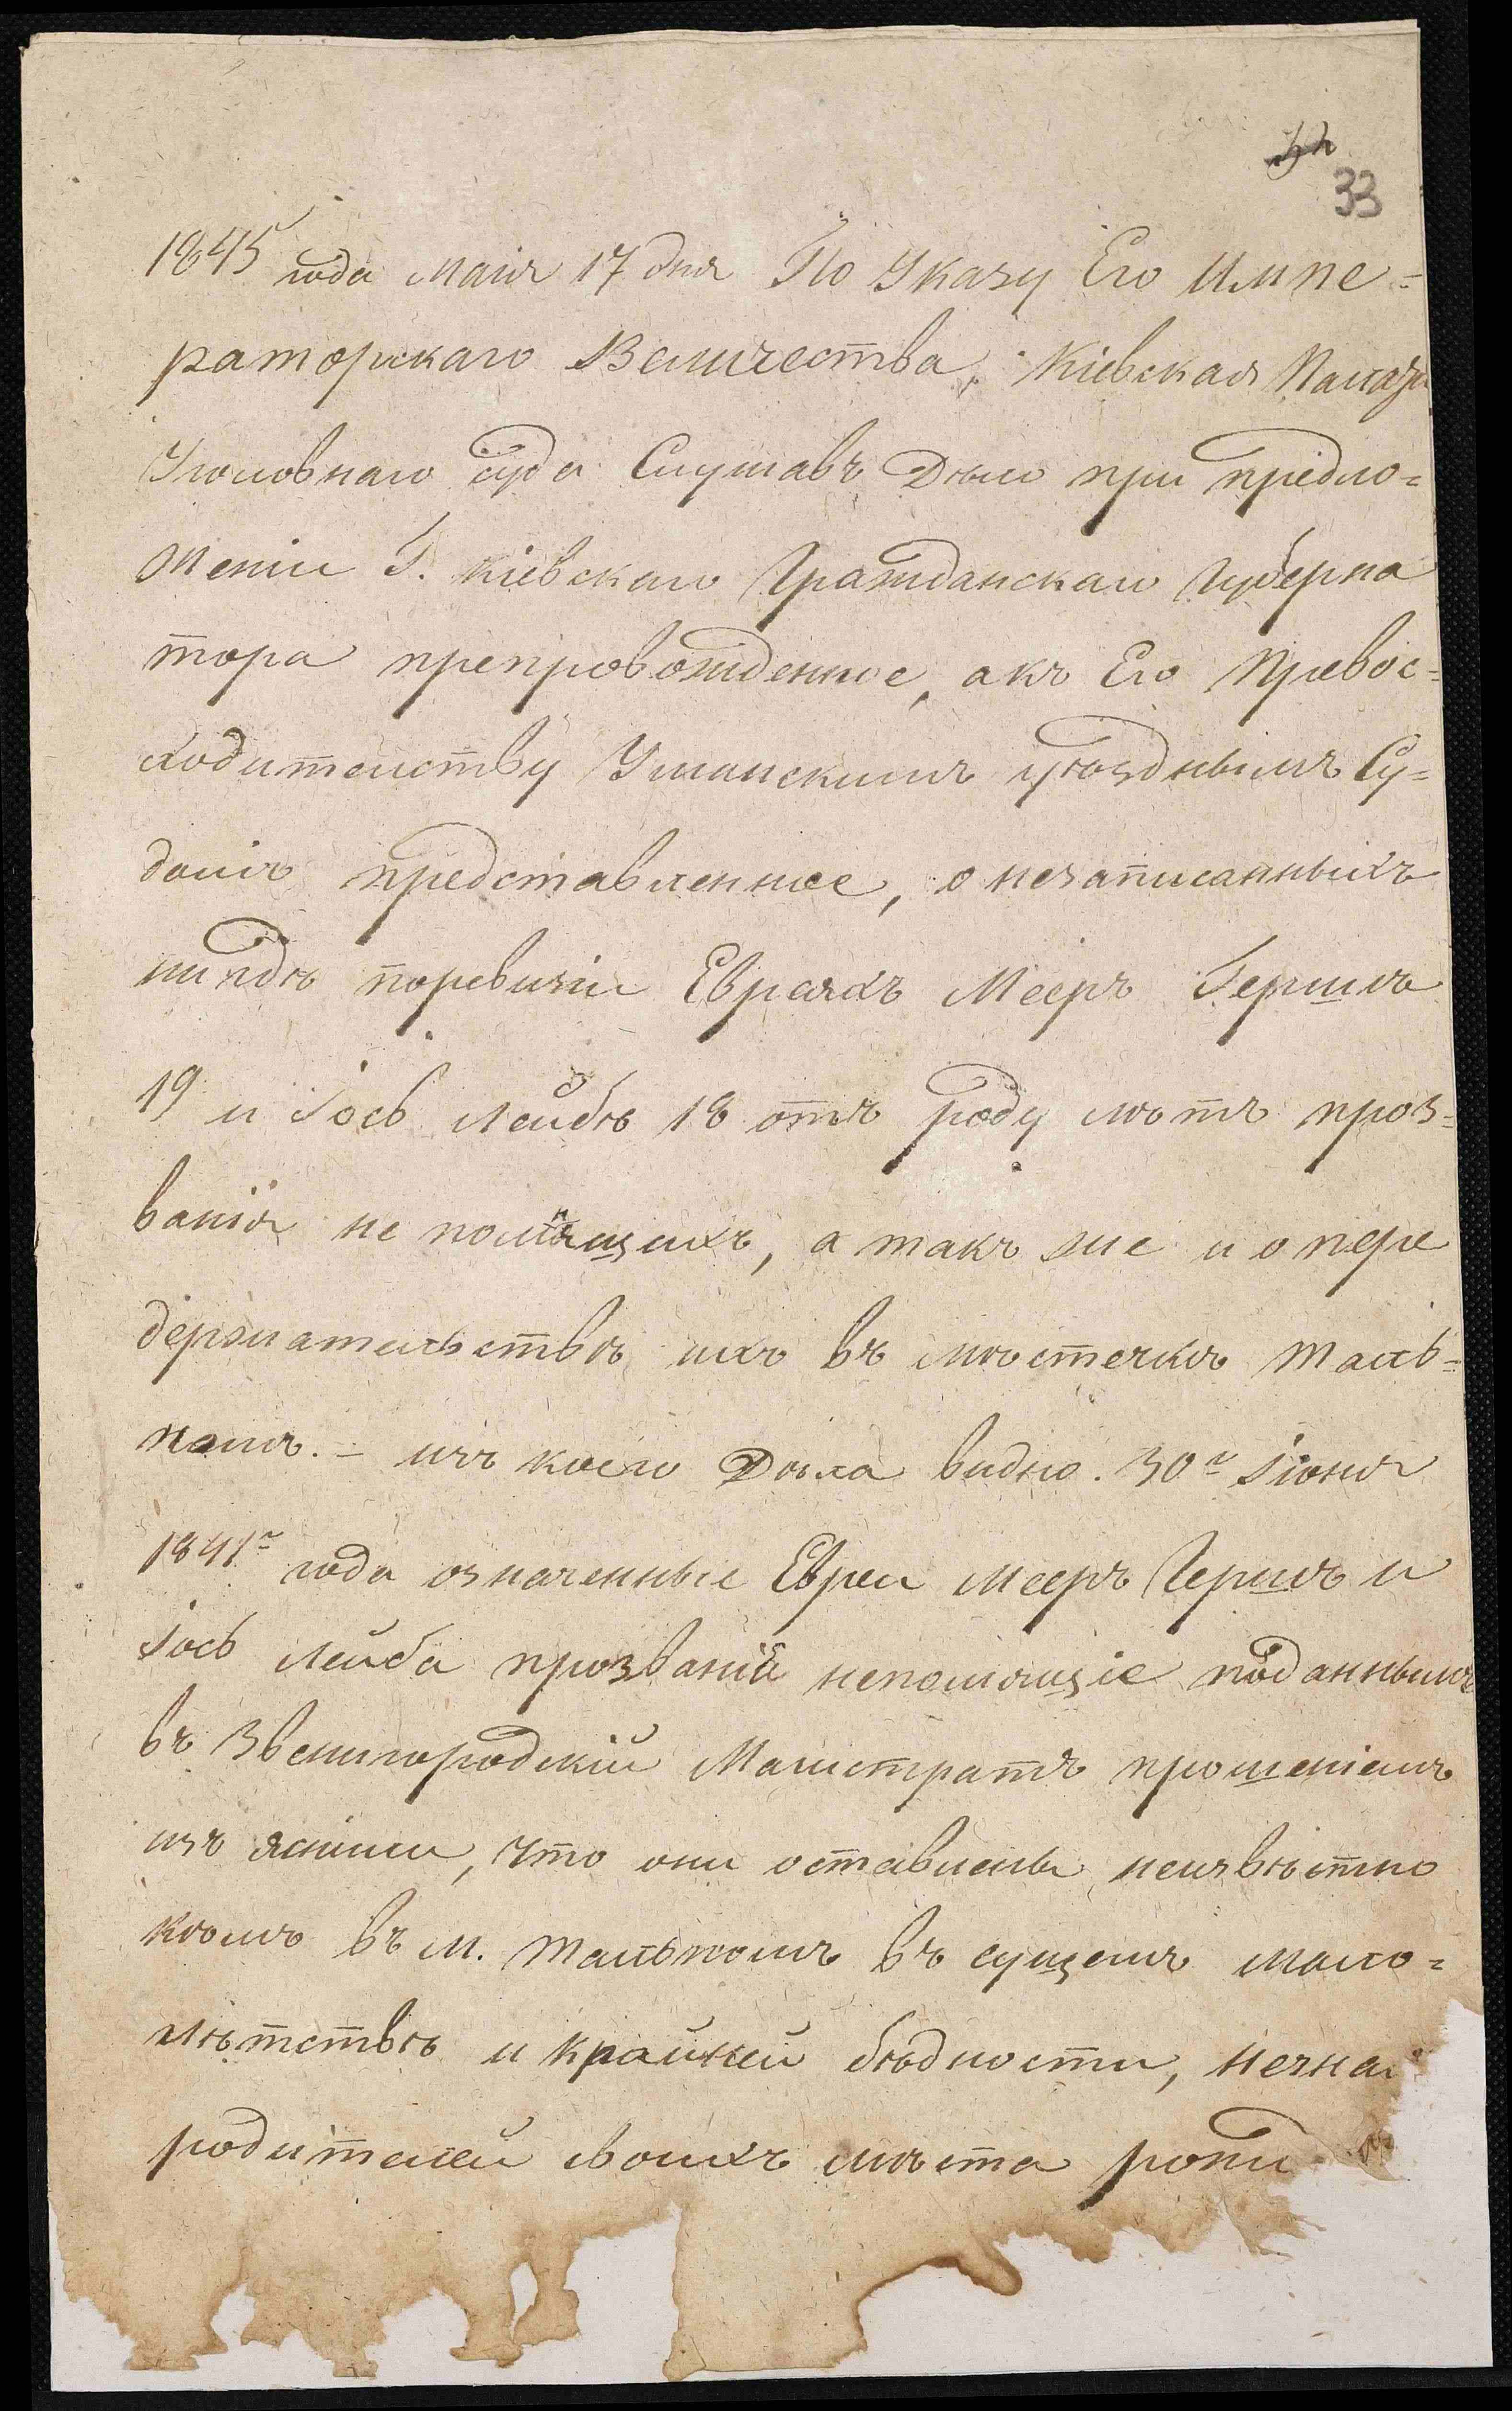 33
1845 года Маія 17 дня По Указу Его Импе=
раторскаго Величества, Кіевская Палата
Уголовнаго суда Слушавъ Дѣло при предло=
женіи Г. Кіевскаго Гражданскаго Губерна
тора препровожденное, акъ Его Превос=
ходительству Уманскимъ уѣзднымъ Су=
домъ представленное, о незаписанныхъ
нигдѣ поревизіи Евреяхъ Мееръ Гершъ
19 и Іось Лейбѣ 18 отъ роду лѣтъ проз=
ванія не помнящихъ, а такъ же и о пере
держательствѣ ихъ въ мѣстечкѣ Таль=
номъ. – изъ коего Дѣла видно. 30г Іюня
1841г года означенные Евреи Мееръ Гершъ и
Іось Лейба прозваній непомнящіе поданнымъ
въ Звенигородскій Магистратъ прошеніемъ
изъ яснили, что они оставлены неизвѣстно
кѣмъ въ м. Тальномъ въ сущемъ мало=
лѣтствѣ и крайней бѣдности, незна
родителей своихъ мѣста рожд